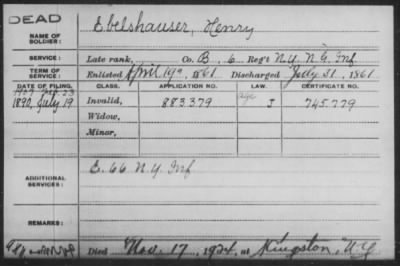 DEAD
NAME OF SOLDIER: Ebelshauser, Henry
SERVICE: Late rank, Co. B. 6 Reg't N.Y. N.G. Inf
TERM OF SERVICE: Enlisted April 19, 1861 Discharged July 31, 1861
DATE OF FILING. CLASS. APPLICATION NO. LAW. CERTIFICATE NO.
1890, July 19 Invalid, 883.379 J 745.779
Widow,
Minor,
ADDITIONAL SERVICES: E. 66 N.Y. Inf
REMARKS:
Died Nov. 17, 1924, at Kingston, NY